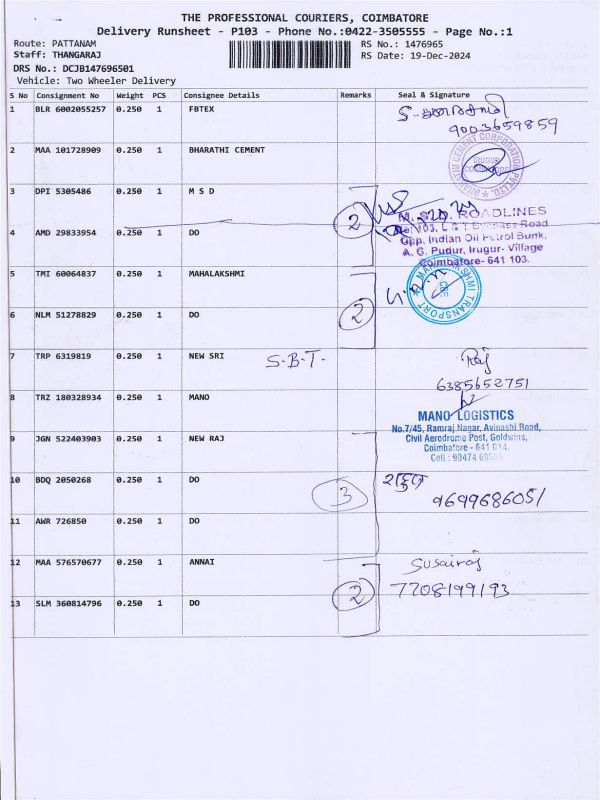 THE PROFESSIONAL COURIERS, COIMBATORE
Delivery Runsheet - P103 - Phone No.:0422-3505555 - Page No.:1
Route: PATTANAM RS No.: 1476965
Staff: THANGARAJ RS Date: 19-Dec-2024
DRS No.: DCJB147696501
Vehicle: Two Wheeler Delivery
S No Consignment No Weight PCS Consignee Details Remarks Seal & Signature
1 BLR 6002055257 0.250 1 FBTEX
9003659859
2 MAA 101728909 0.250 1 BHARATHI CEMENT
BHARATHI CEMENT CORPORATION PVT.LTD.
IRUGUR
COIMBATORE
3 DPI 5305486 0.250 1 M S D
2
M. S. D. ROADLINES
Bypass Road
Opp. Indian Oil Petrol Bunk,
A. G. Pudur, Irugur- Village
Coimbatore- 641 103.
4 AMD 29833954 0.250 1 DO
5 TMI 60064837 0.250 1 MAHALAKSHMI
MAHALAKSHMI TRANSPORT
CBE
2
6 NLM 51278829 0.250 1 DO
7 TRP 6319819 0.250 1 NEW SRI S.B.T.
Raj
6385652751
8 TRZ 180328934 0.250 1 MANO
MANO LOGISTICS
No.7/45, Ramraj Nagar, Avinashi Road,
Civil Aerodrome Post, Goldwins,
Coimbatore - 641 014.
Cell : 90474
9 JGN 522403903 0.250 1 NEW RAJ
10 BDQ 2050268 0.250 1 DO 3
9699686051
11 AWR 726850 0.250 1 DO
12 MAA 576570677 0.250 1 ANNAI
Susairaj
7708199193
2
13 SLM 360814796 0.250 1 DO